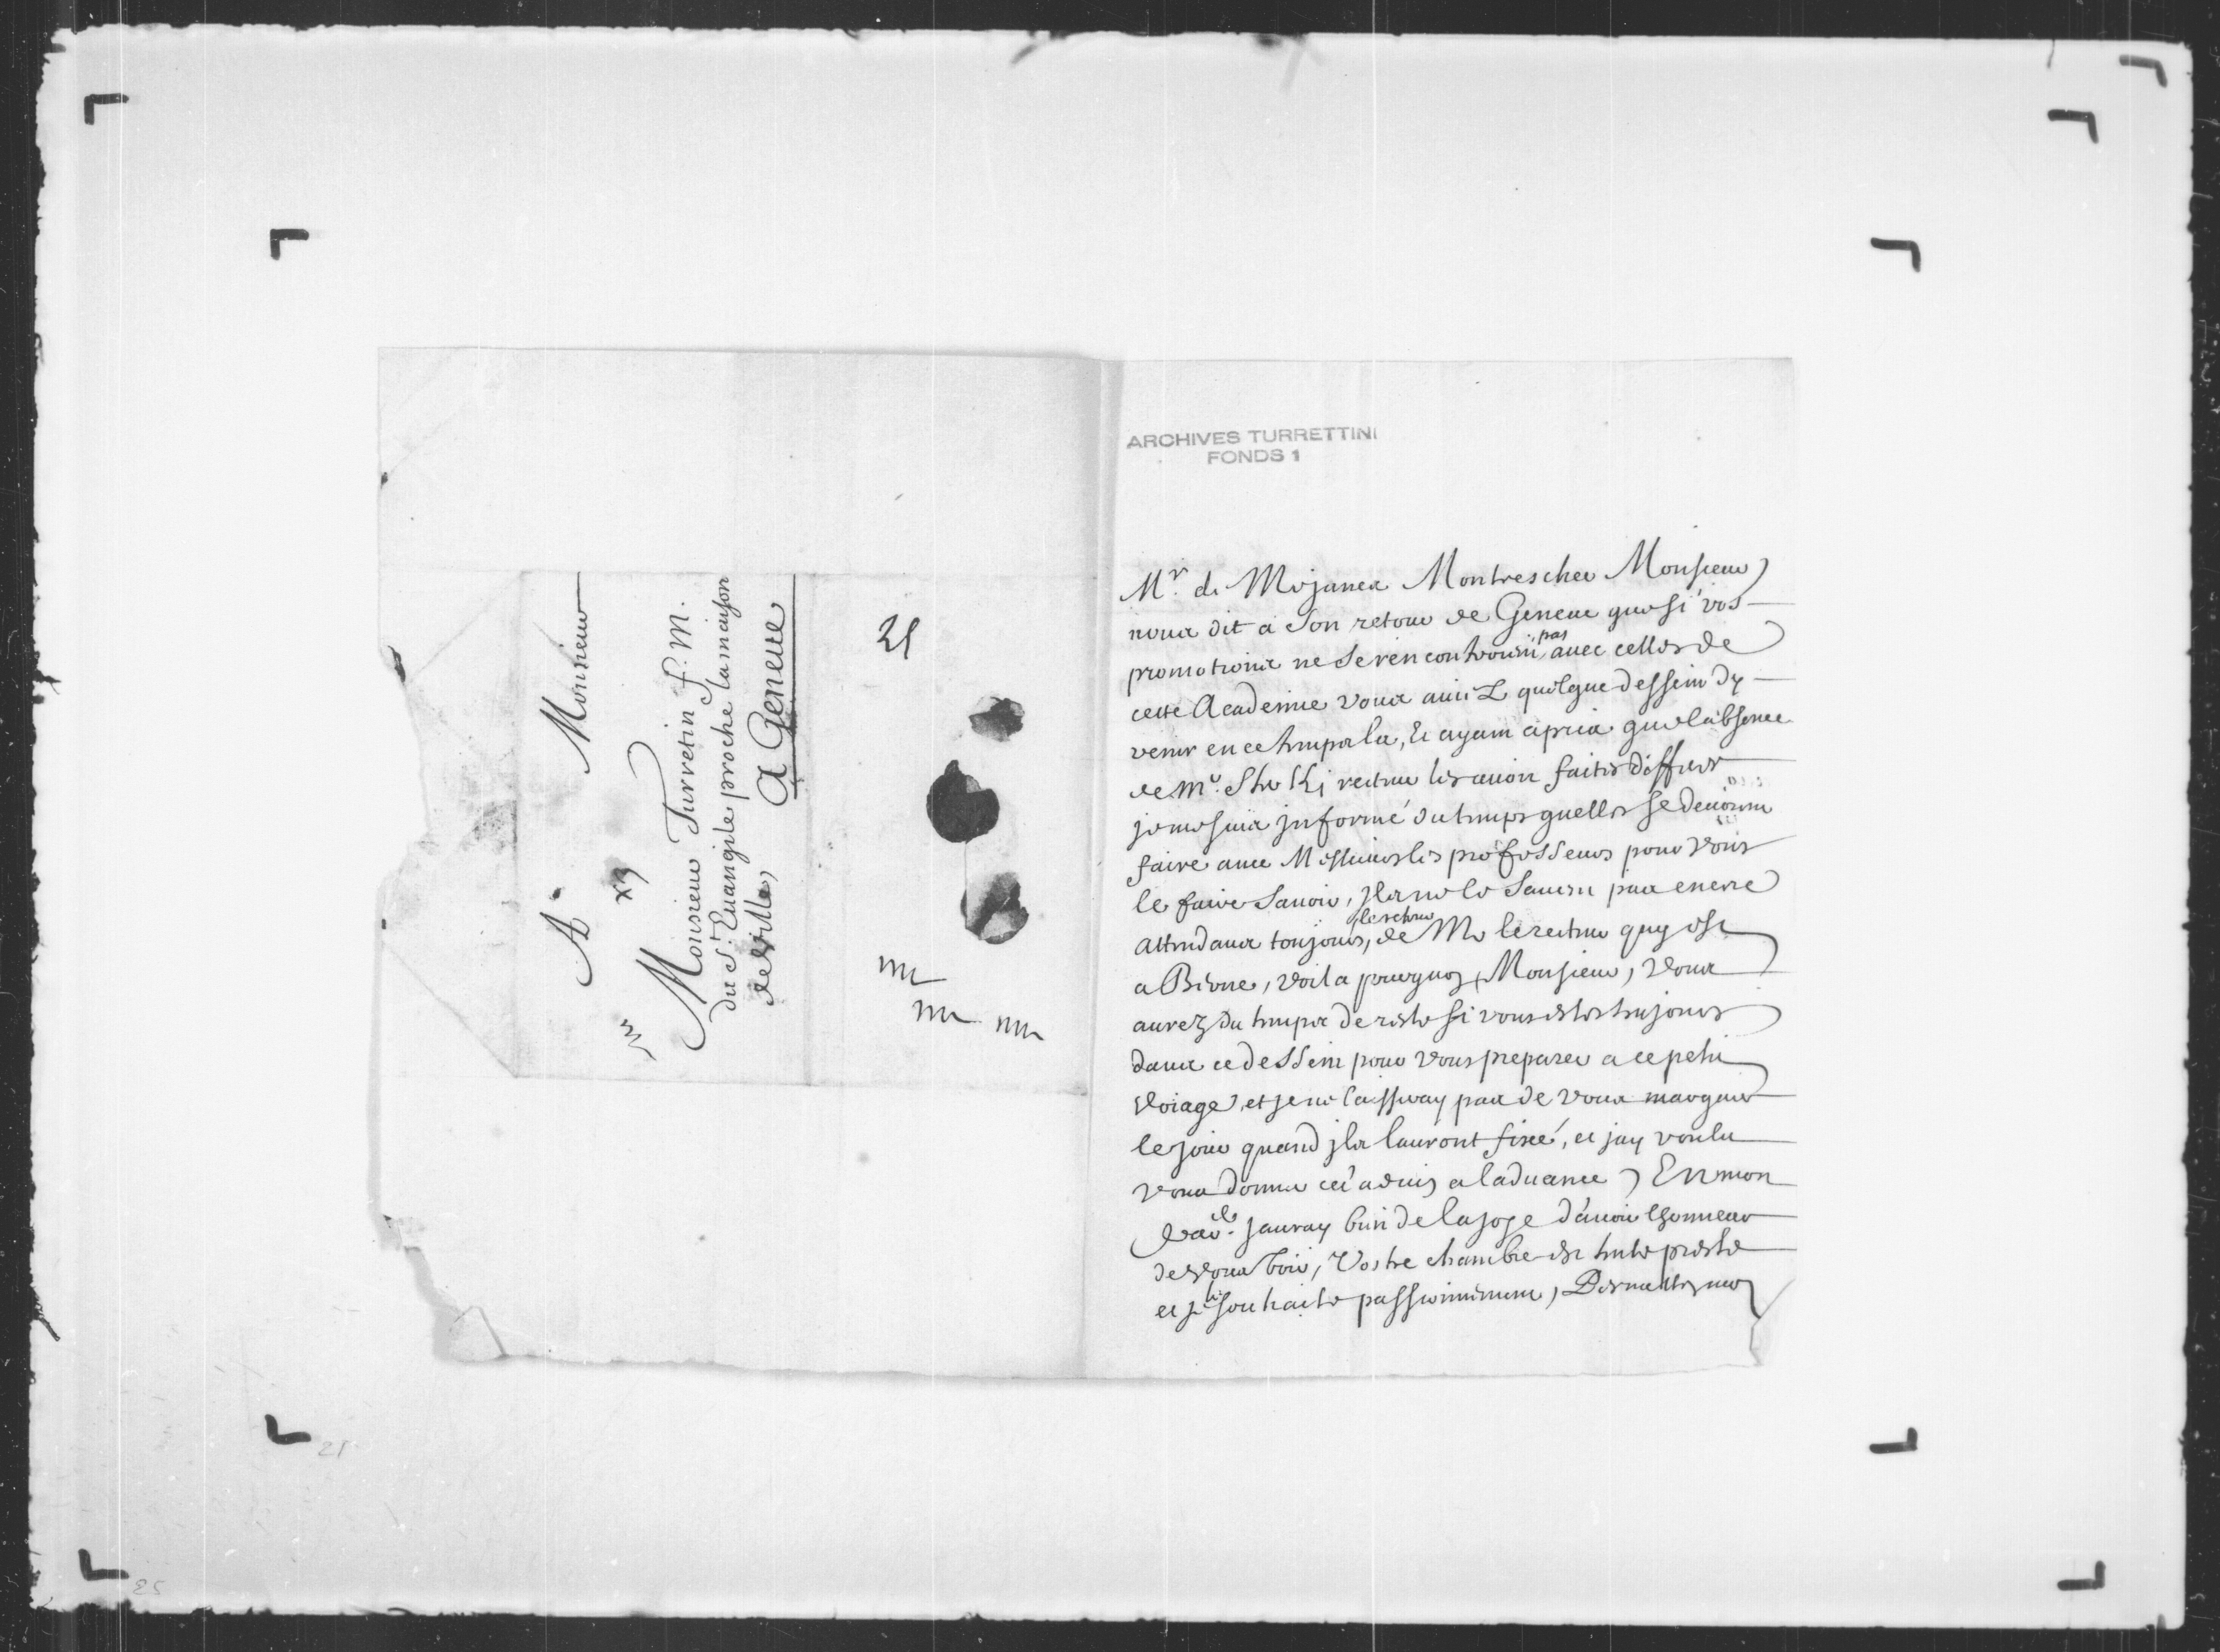 A Monsieur
Monsieur Turretin f. M.
du St. Euangile proche la maison
de Ville,
A Geneue
21
ARCHIVES TURRETTINI
FONDS 1
Mr. de Mojanea Montrescher Monsieur
nous dit a son retour de Geneue que si vos
promotions ne se rencontroint pas auec celles de
cette Academie vous auiez quelque dessein dy
venir en ce temps la, et ayant apris que labsence
de Mr. recteur les auoit faites differer
je me suis jnformé du temps quelles se deuoint
faire auec Messieurs les professeurs pour vous
le faire sauoir, jls ne le sauent pas encore
attendans toujours, le retour de Mr le recteur quy est
a Berne, voila pourquoy, Monsieur, vous
aurez du temps de reste si vous estes toujours
dans ce dessein pour vous preparer a ce petit
voiage, et je ne laisseray pas de vous marquer
le jour quand jls lauront fixé, et jay voulu
vous donner cet aduis a laduance, En mon
jauray bien de la joye dauoir lhonneur
de vous voir, Vostre chambre est toute preste
et je le souhaite passionnement, Permettez moy
21
25